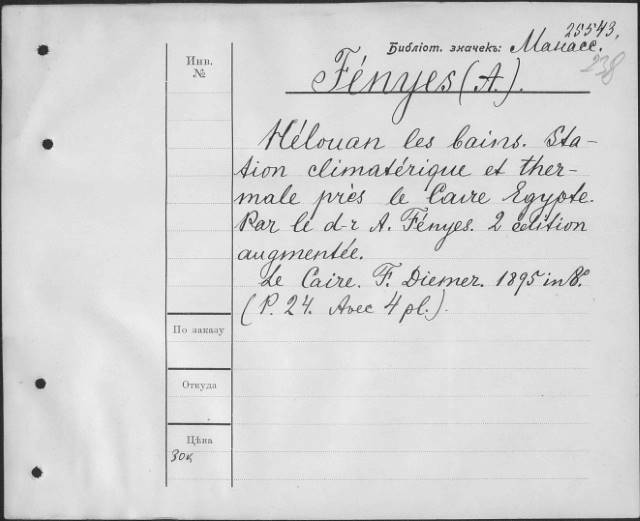 25543,
Библіот. значекъ: Манасс.
238
Инв.
№
Fényes (A.).
Hélouan les bains. Sta-
tion climatérique et ther-
male près le Caire Egypte.
Par le d-r A. Fényes. 2 édition
augmentée.
Le Caire. F. Diemer. 1895 in 8º.
(P. 24. Avec 4 pl.).
По заказу
Откуда
Цѣна
30к